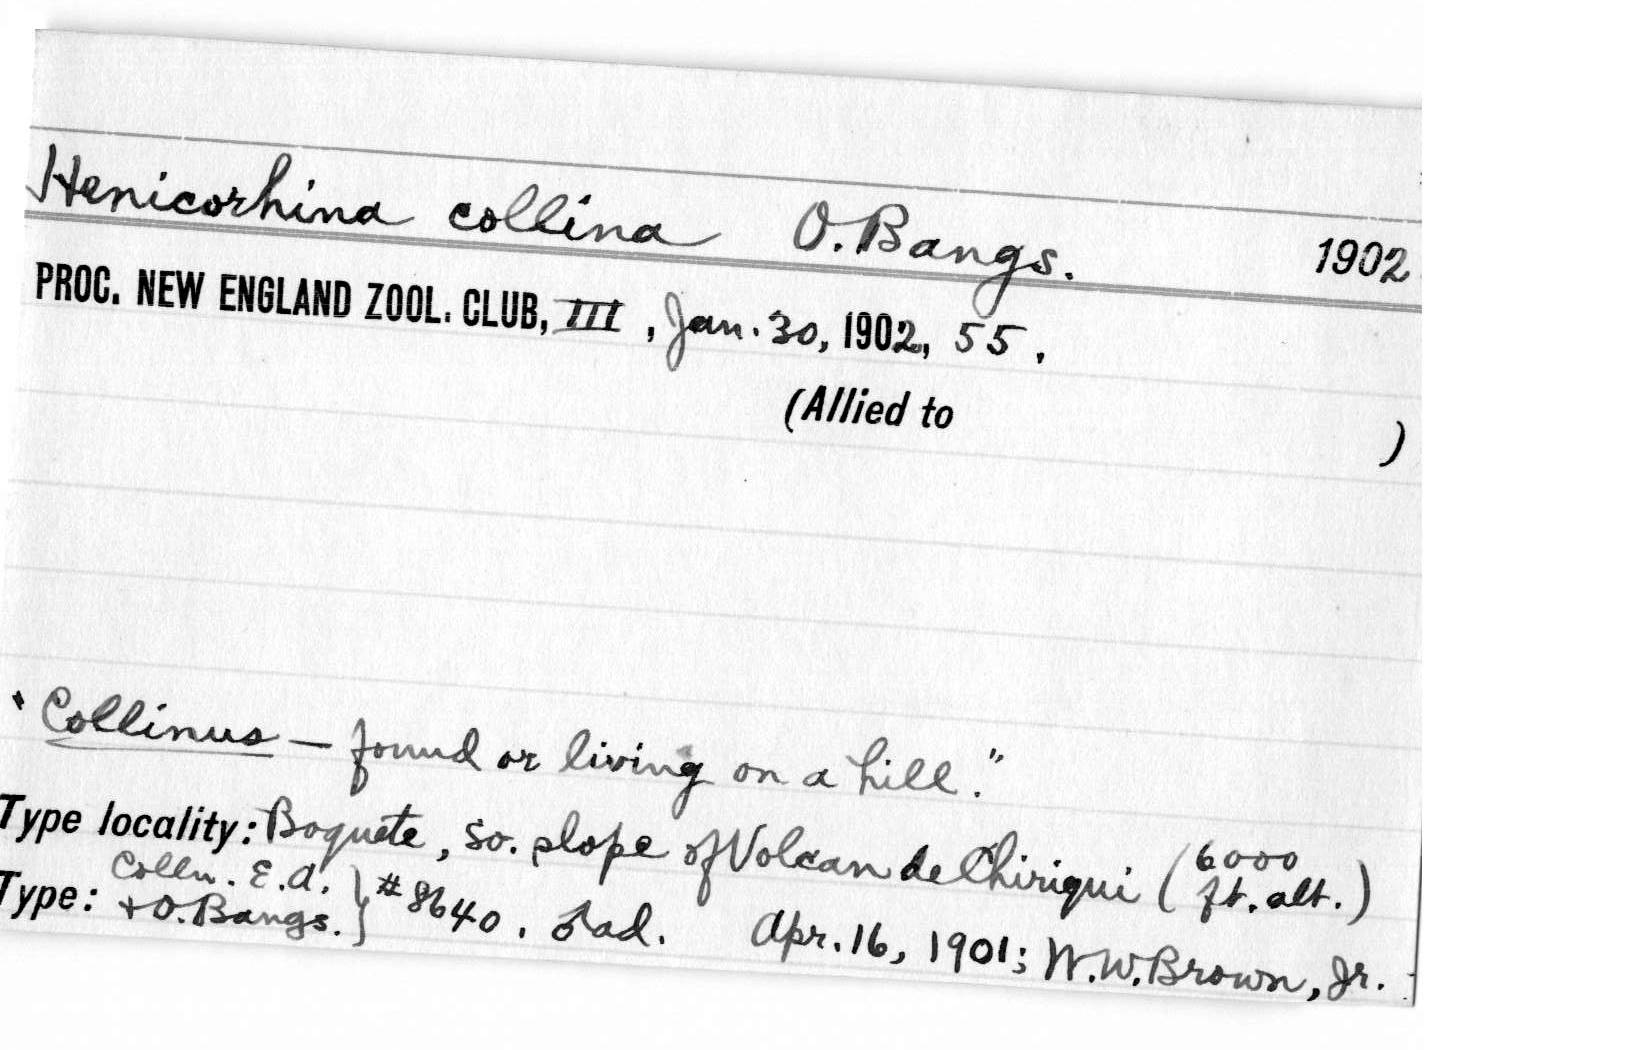 Henicorhina collina O. Bangs. 1902
PROC. NEW ENGLAND ZOOL. CLUB, III, Jan. 30, 1902, 55.
(Allied to )
"Collinus — found or living on a hill."
Type locality: Boquete, so. slope of Volcan de Chiriqui (6000 ft. alt.)
Type: Colln. E.A. + O. Bangs. } #8640. ♂ad. Apr. 16, 1901; W.W. Brown, Jr.